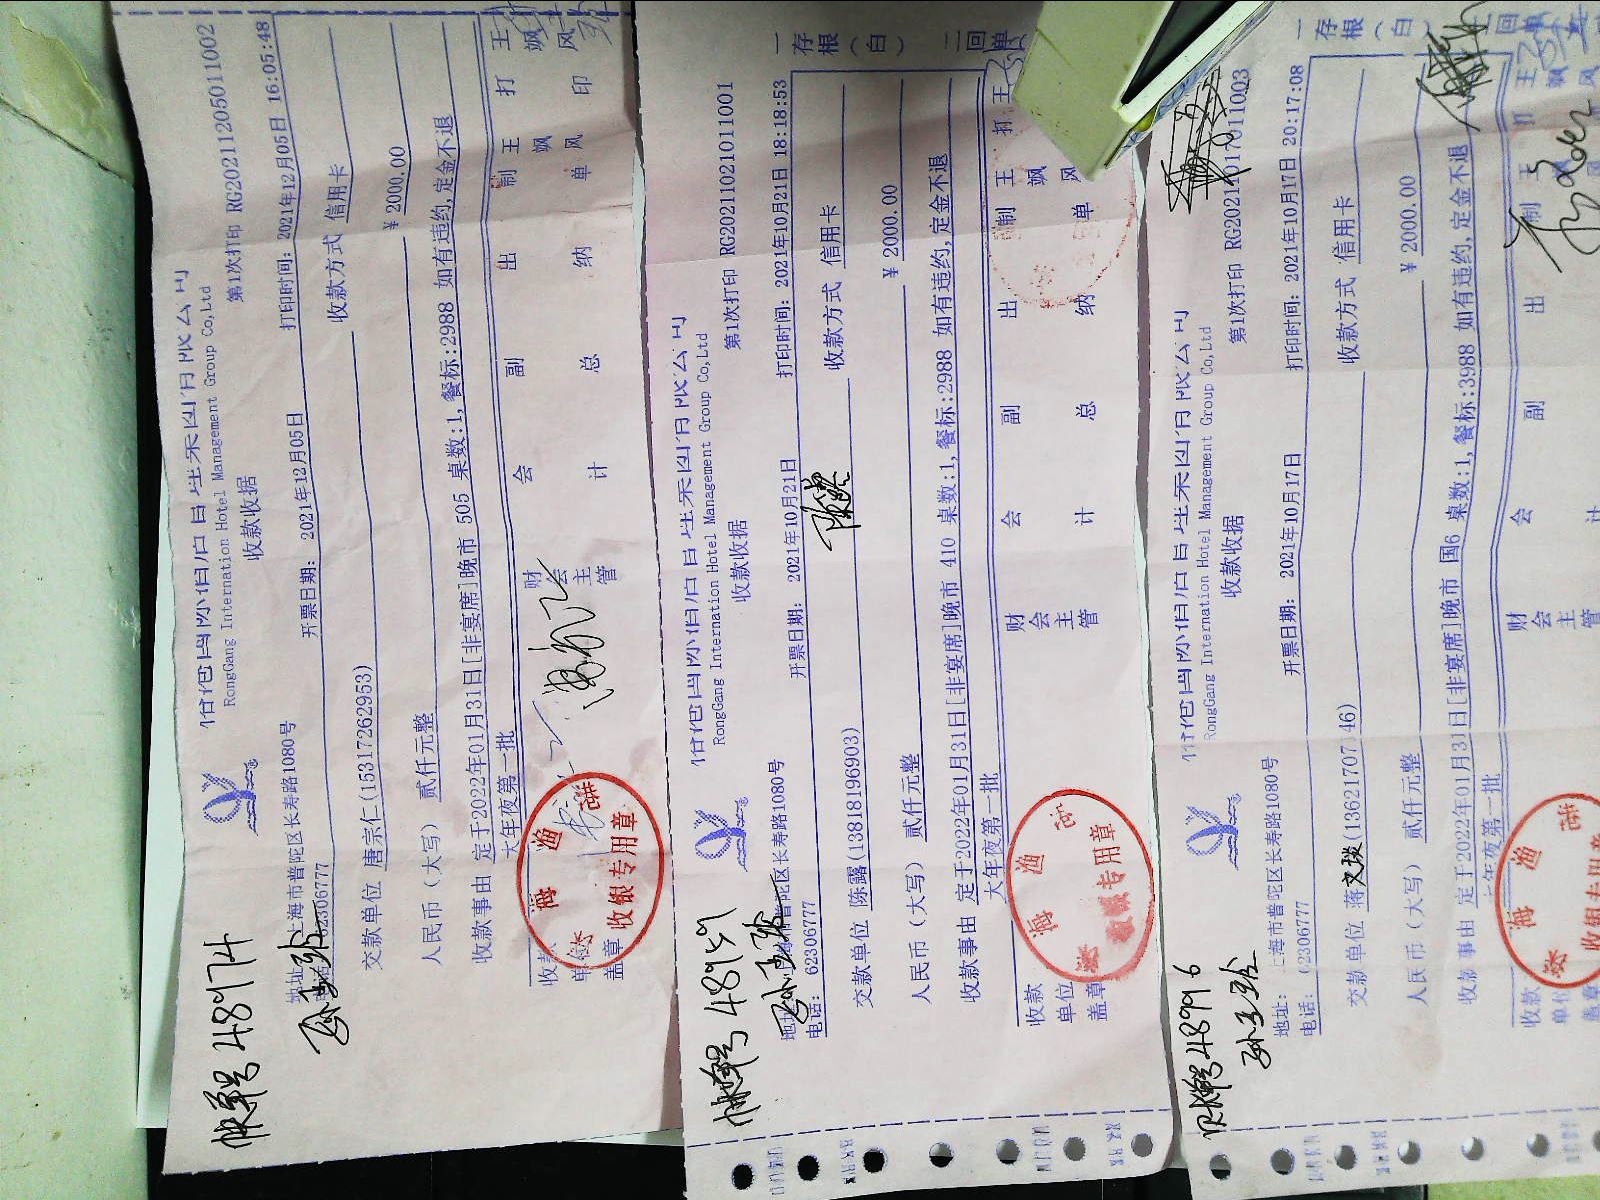 RongGang Internation Hotel Management Group Co,Ltd
收款收据
第1次打印 RG20211205011002
帐单号 48974
地址: 上海市普陀区长寿路1080号
62306777
开票日期: 2021年12月05日
打印时间: 2021年12月05日 16:05:48
交款单位 唐宗仁(15317262953)
收款方式 信用卡
人民币（大写） 贰仟元整
￥ 2000.00
收款事由 定于2022年01月31日[非宴席]晚市 505 桌数:1,餐标:2988 如有违约,定金不退
大年夜第一批
收款单位盖章
财会主管
会计
副总
出纳
制单
王飒风
打印
王飒风
收银专用章
RongGang Internation Hotel Management Group Co,Ltd
收款收据
第1次打印 RG20211021011001
一存根（白） 二回单
帐单号 48959
地址: 上海市普陀区长寿路1080号
电话: 62306777
开票日期: 2021年10月21日
打印时间: 2021年10月21日 18:18:53
交款单位 陈露(13818196903)
收款方式 信用卡
人民币（大写） 贰仟元整
￥ 2000.00
收款事由 定于2022年01月31日[非宴席]晚市 410 桌数:1,餐标:2988 如有违约,定金不退
大年夜第一批
收款单位盖章
财会主管
会计
副总
出纳
制单
王飒风
打
王
收银专用章
RongGang Internation Hotel Management Group Co,Ltd
收款收据
第1次打印
一存根（白） 二回
帐单号 48996
地址: 上海市普陀区长寿路1080号
电话: 62306777
开票日期: 2021年10月17日
打印时间: 2021年10月17日 20:17:08
交款单位 蒋文琰
收款方式 信用卡
人民币（大写） 贰仟元整
￥ 2000.00
收款事由 定于2022年01月31日[非宴席]晚市 国6 桌数:1,餐标:3988 如有违约,定金不退
大年夜第一批
收款单位盖章
财会主管
会计
副
出
制
王
打
王飒风
收银专用章